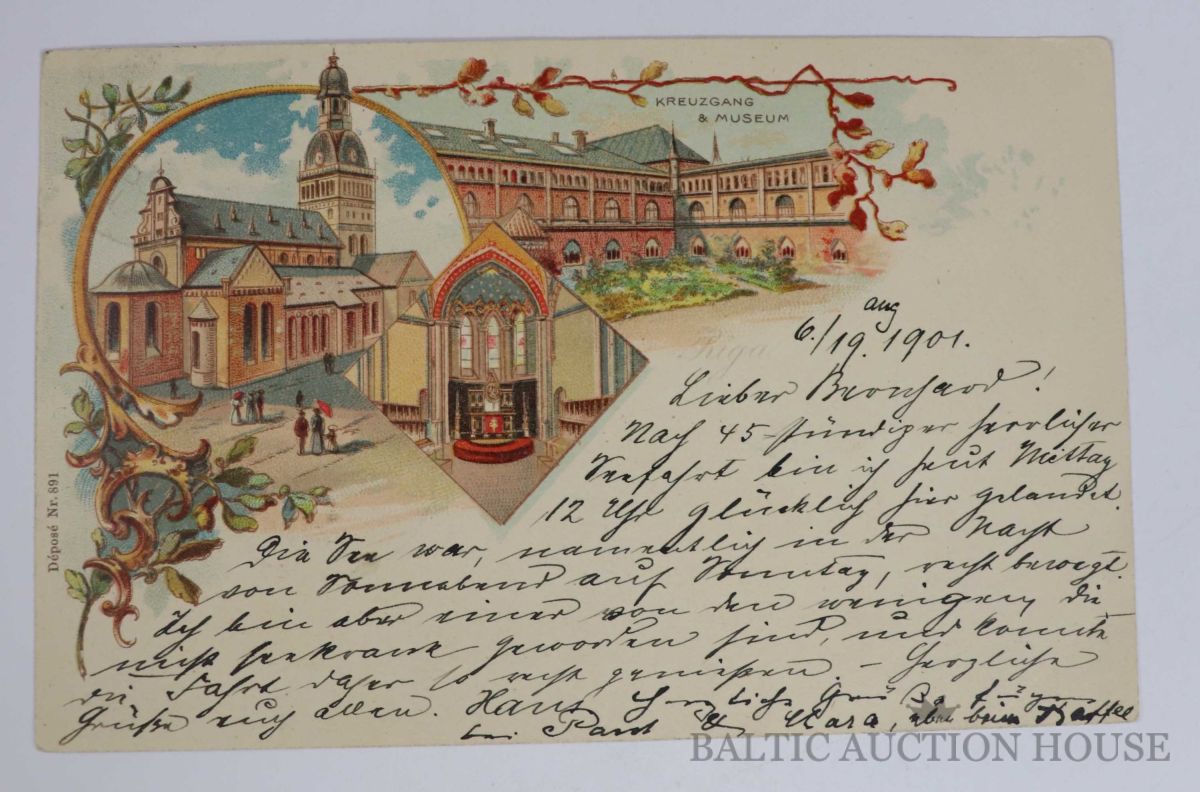 KREUZGANG
& MUSEUM
Déposé Nr. 891
Riga
aug
6./19. 1901.
Lieber Bernhard!
Nach 45-stündiger herrlicher
Seefahrt bin ich heut Mittag
12 Uhr glücklich hier gelandet.
Die See war, namentlich in der Nacht
von Sonnabend auf Sonntag, recht bewegt.
Ich bin aber einer von den wenigen, die
nicht seekrank geworden sind, und konnte
die Fahrt daher so recht genießen. – Herzliche
Grüße euch allen. Hans Herzliche Grüße
bei Clara, eben beim Kaffee
BALTIC AUCTION HOUSE